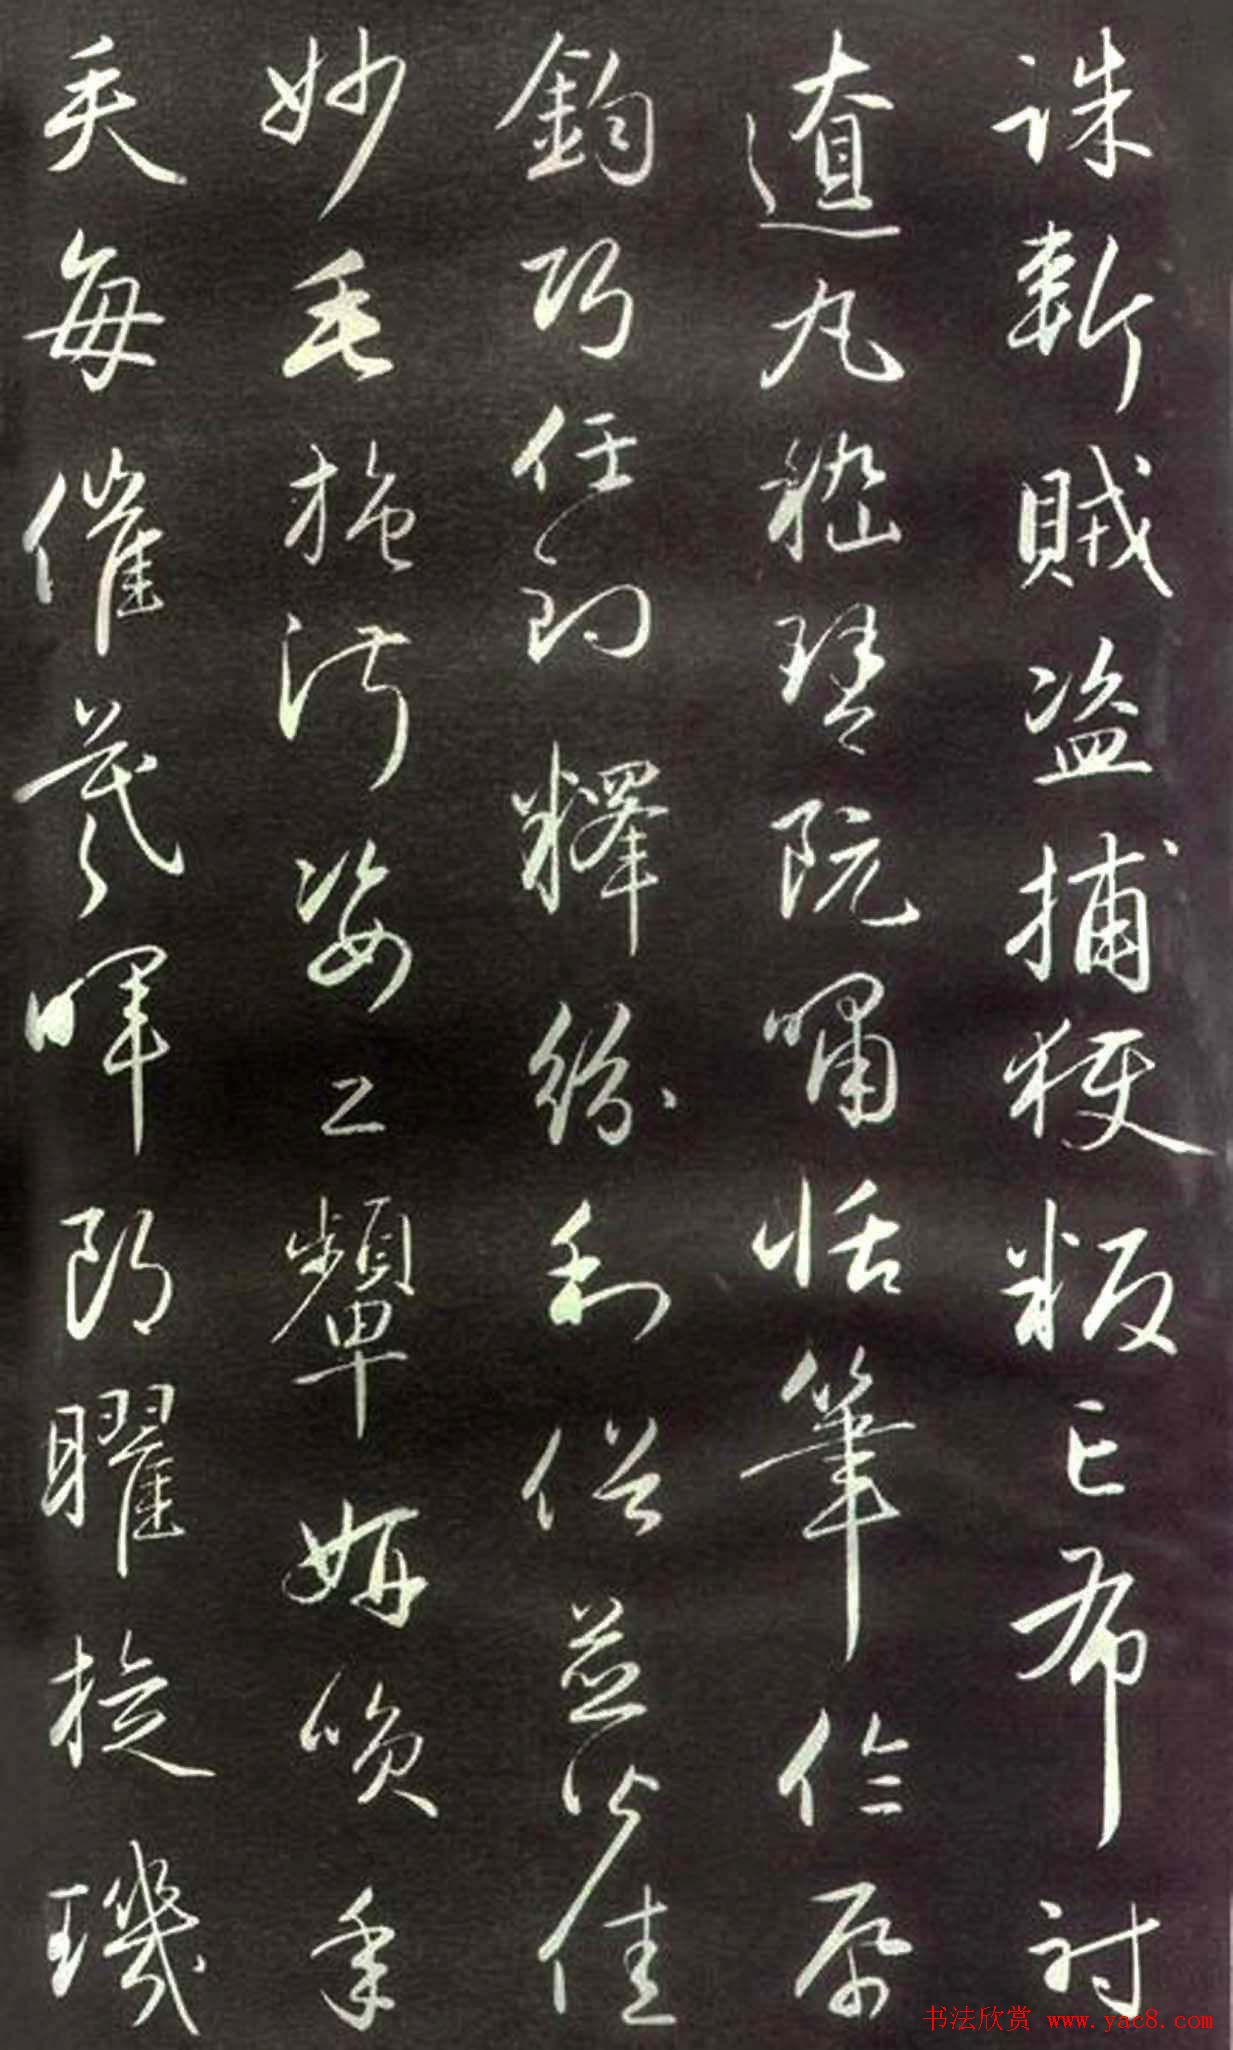 誅斬賊盗捕獲叛亡布射
遼丸嵇琴阮嘯恬筆倫帋
鈞巧任釣釋紛利俗並皆佳
妙毛施淑姿工顰妍咲年
矢每催羲暉朗曜旋璣
书法欣赏 www.yac8.com